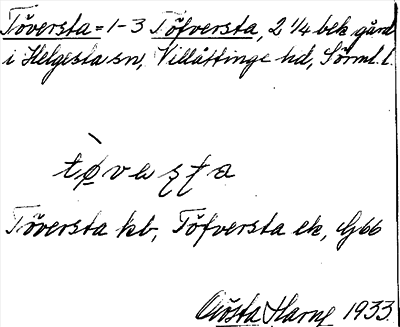 Töversta = 1-3 Töfversta, 2 1/4 bek gård
i Helgesta sn, Villåttinge hd, Sörml. l.
tø̀vaʂʈa
Töversta kb, Töfversta ek, G66
Gösta Harne 1933.